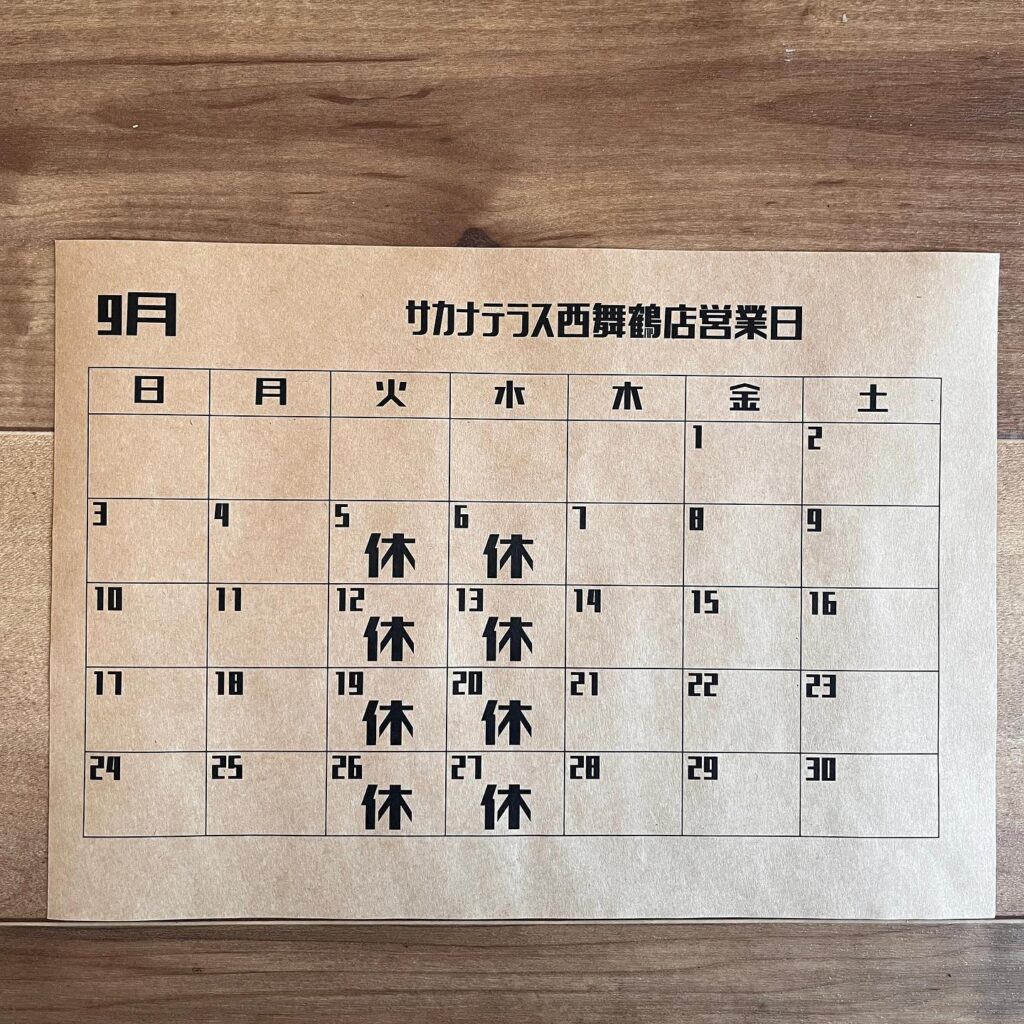 9月 サカナテラス西舞鶴店営業日
日 月 火 水 木 金 土
1 2
3 4 5 休 6 休 7 8 9
10 11 12 休 13 休 14 15 16
17 18 19 休 20 休 21 22 23
24 25 26 休 27 休 28 29 30